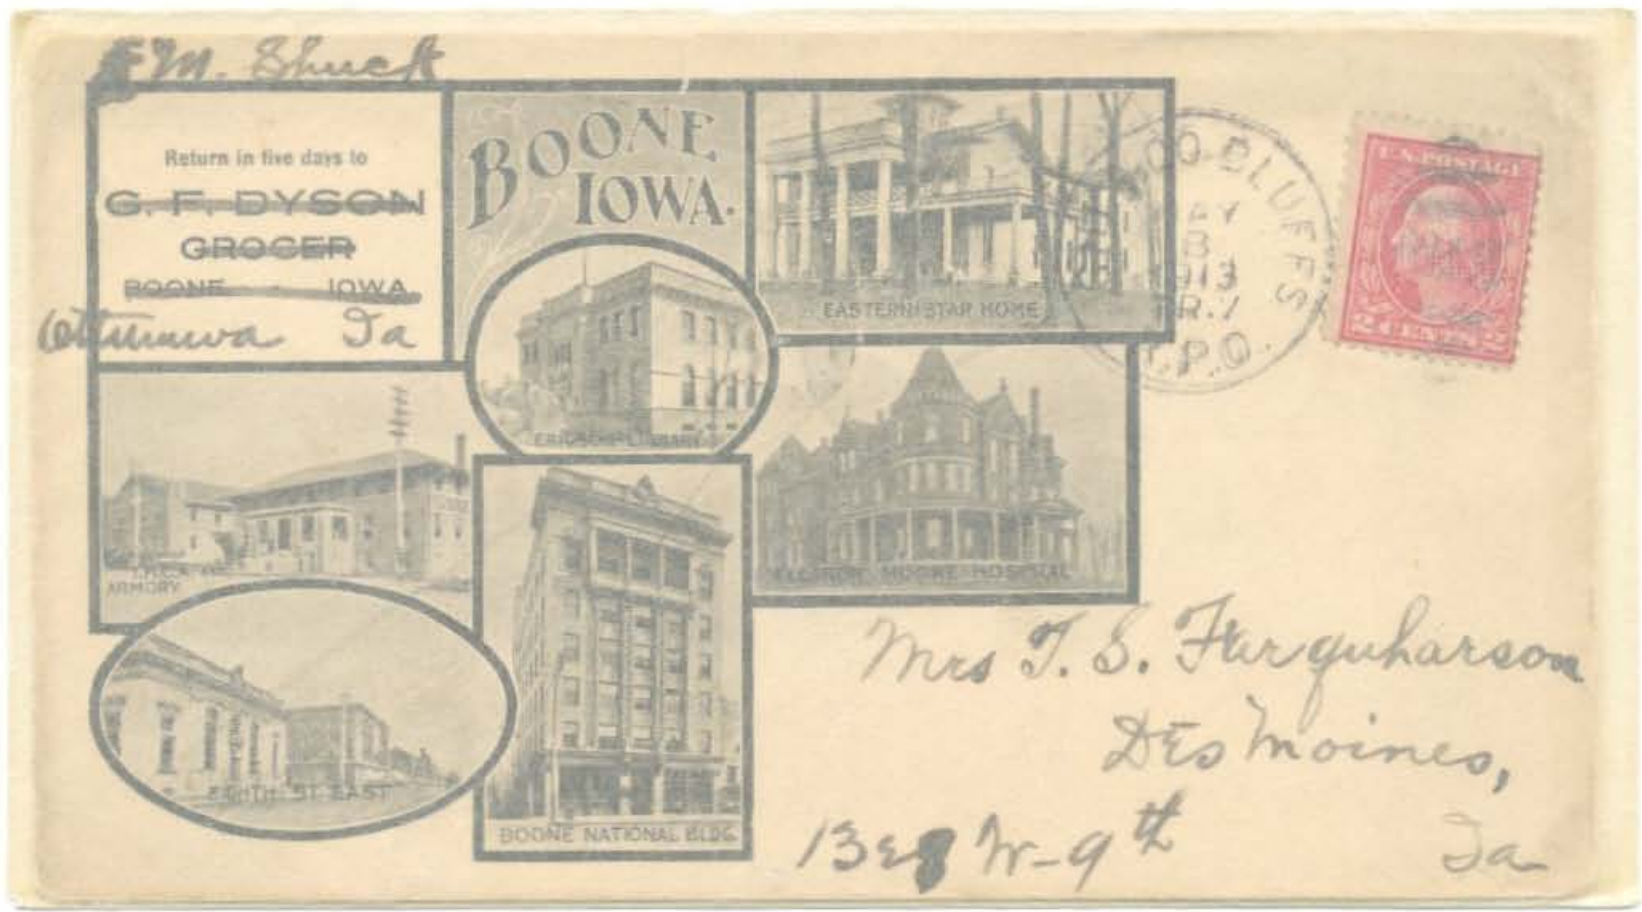 M. Shuck
Return in five days to
G. F. DYSON
GROCER
BOONE IOWA
Ottumwa Ia
BOONE
IOWA.
EASTERN STAR HOME
ERICSON LIBRARY
ELEANOR MOORE HOSPITAL
ARMORY
EIGHTH ST. EAST
BOONE NATIONAL BLDG.
BLUFFS
1913
R.P.O.
U.S. POSTAGE
2 CENTS 2
Mrs T. S. Farquharson
Des Moines,
W-9th
Ia